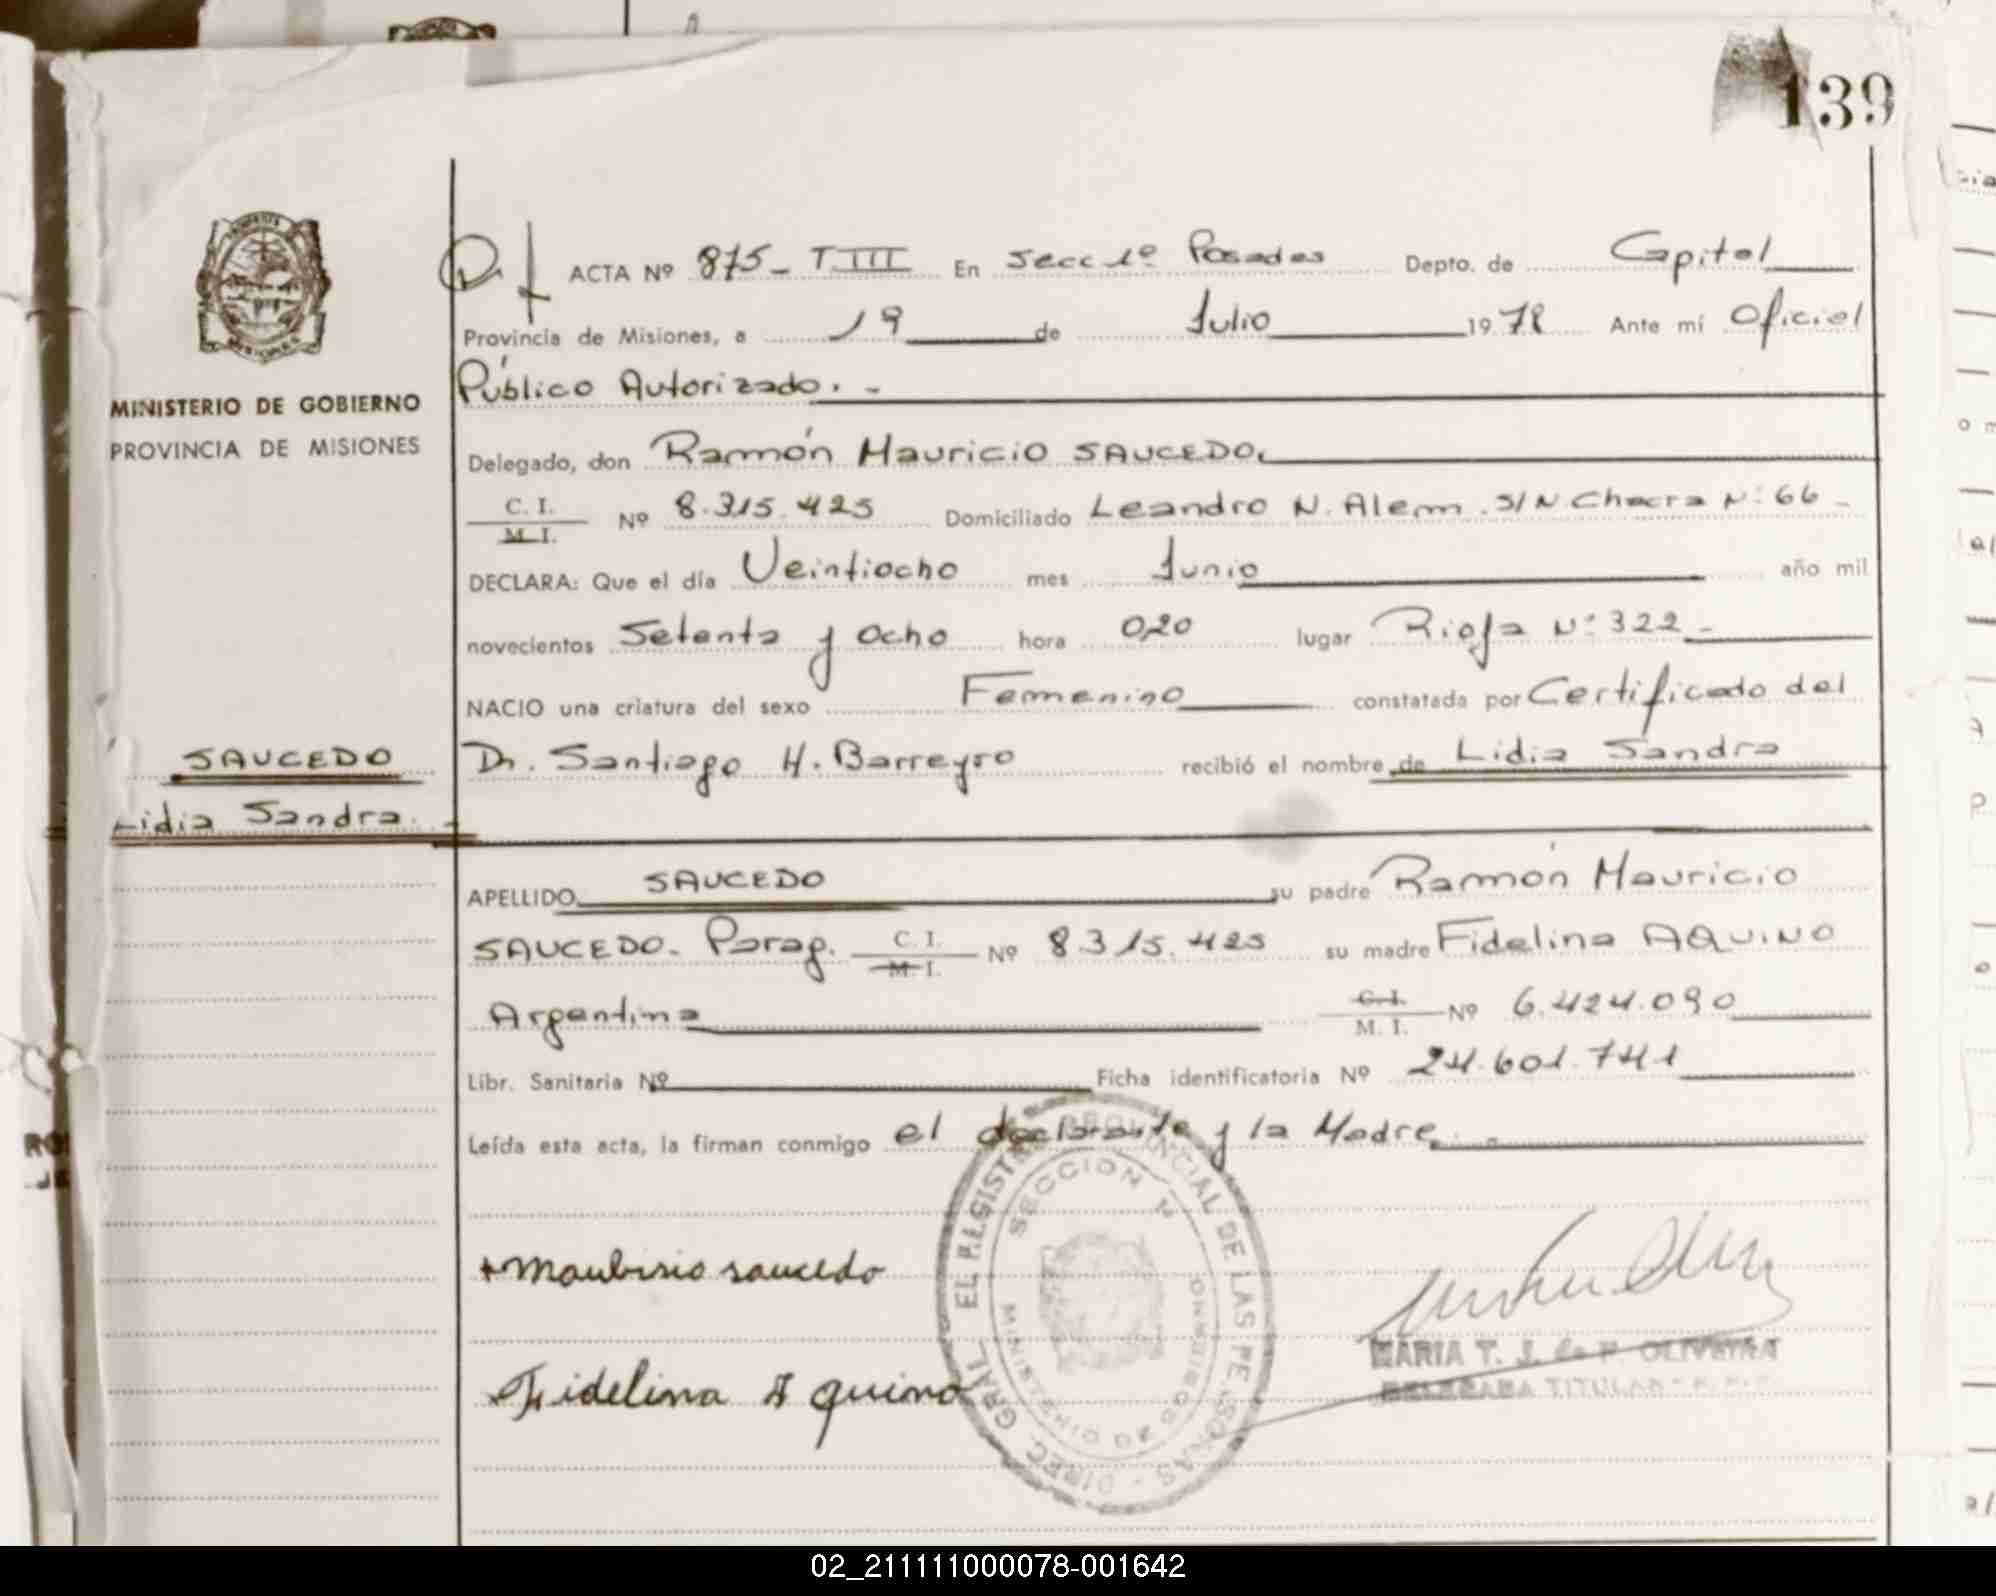 139
ACTA Nº 875 - T III En Secc 1º Posadas Depto. de Capital
Provincia de Misiones, a 19 de Julio 1978 Ante mí Oficial
Público Autorizado. -
MINISTERIO DE GOBIERNO
PROVINCIA DE MISIONES
Delegado, don Ramón Mauricio SAUCEDO.
C. I.
M. I.
Nº 8.315.425 Domiciliado Leandro N. Alem. S/N. Chacra Nº: 66 -
DECLARA: Que el día Veintiocho mes Junio año mil
novecientos Setenta y Ocho hora 0,20 lugar Rioja Nº: 322 -
NACIO una criatura del sexo Femenino constatada por Certificado del
Dr. Santiago H. Barreyro recibió el nombre de Lidia Sandra
SAUCEDO
Lidia Sandra. -
APELLIDO SAUCEDO su padre Ramón Mauricio
SAUCEDO. Parag. C. I.
M. I. Nº 8.315.425 su madre Fidelina AQUINO
Argentina C. I.
M. I. Nº 6.424.090
Libr. Sanitaria Nº Ficha identificatoria Nº 24.601.741
Leída esta acta, la firman conmigo el declarante y la Madre. -
Fidelina Aquino
SECCION
MINISTERIO DE GOBIERNO
MARIA T. J. de F. OLIVEIRA
DELEGADA TITULAR
02_211111000078-001642